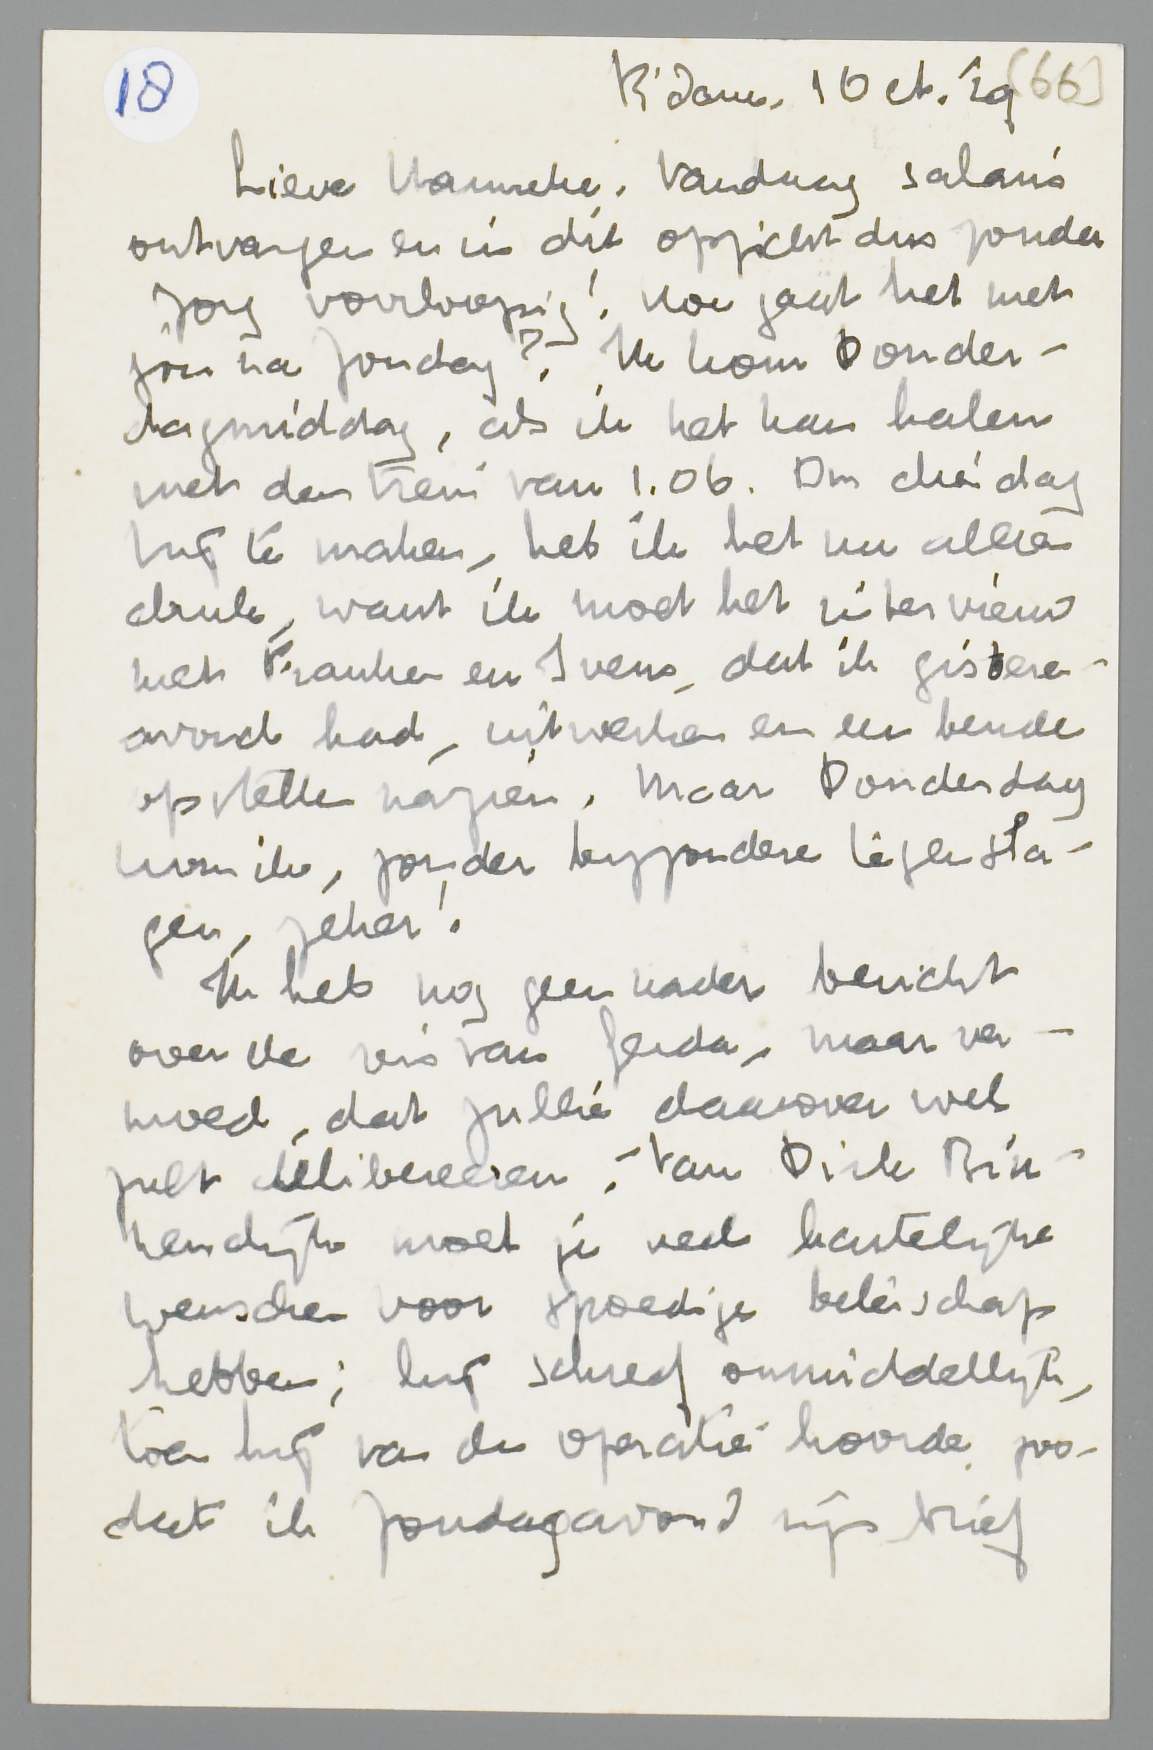 18
R'dam, 1 Oct. '29 [66]
Lieve Hanneke, Vandaag salaris
ontvangen en in dit opzicht dus zonder
zorg voorloopig! Hoe gaat het met
jou na Zondag? Ik kom Donder-
dagmiddag, als ik het kan halen
met den trein van 1.06. Om die dag
vrij te maken, heb ik het nu alleen
druk, want ik moet het interview
met Franken en Ivens, dat ik gisteren-
avond had, uitwerken en een bende
opstellen nazien. Maar Donderdag
kom ik, zonder byzondere tegensla-
gen, zeker!
Ik heb nog geen nader bericht
over de reis van Gerda, maar ver-
moed, dat jullie daarover wel
zult delibereeren. Van Dirk Bin-
nendijk moet je veel hartelijke
wenschen voor spoedige beterschap
hebben; hij schreef onmiddellijk,
toen hij van de operatie hoorde, zoo-
dat ik Zondagavond zijn brief